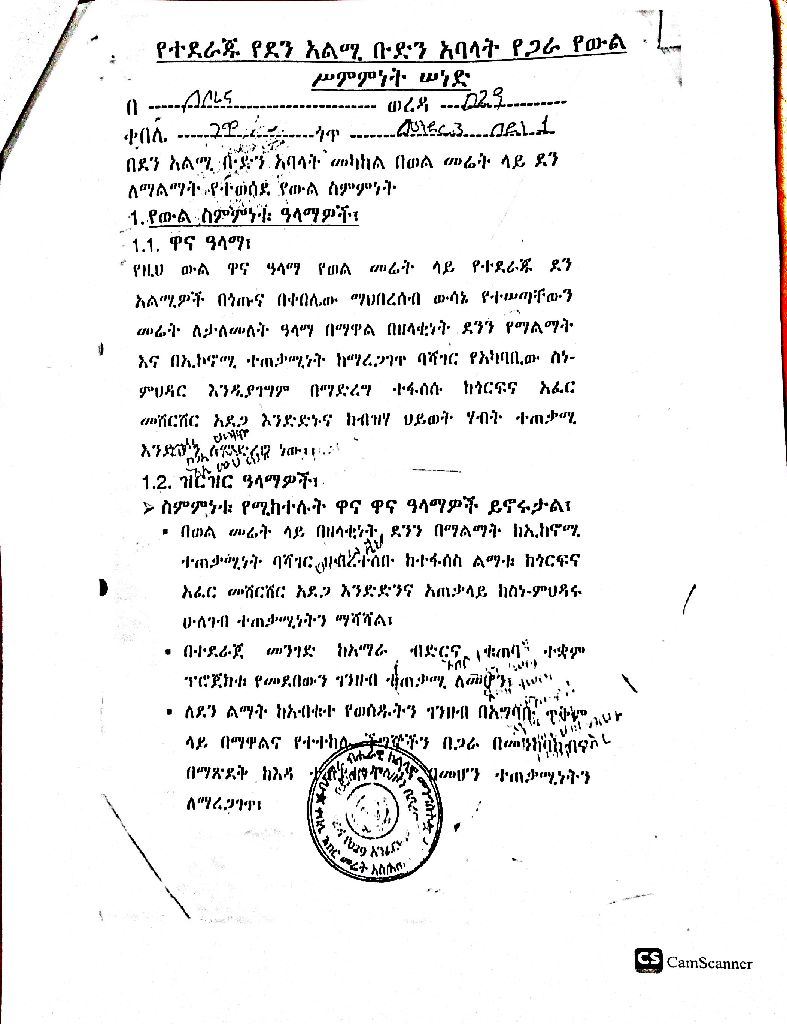 የተደራጁ የደን አልሚ ቡድን አባላት የጋራ የውል
ሥምምነት ሠነድ
በ ወረዳ
ቀበሌ ጎጥ
በደን አልሚ ቡድን አባላት መካከል በወል መሬት ላይ ደን
ለማልማት የተወሰደ የውል ስምምነት
1. የውል ስምምነቱ ዓላማዎች፣
1.1. ዋና ዓላማ፣
የዚህ ውል ዋና ዓላማ የወል መሬት ላይ የተደራጁ ደን
አልሚዎች በጎጡና በቀበሌው ማህበረሰብ ውሳኔ የተሠጣቸውን
መሬት ለታለመለት ዓላማ በማዋል በዘላቂነት ደንን የማልማት
እና በኢኮኖሚ ተጠቃሚነት ከማረጋገጥ ባሻገር የአካባቢው ስነ-
ምህዳር እንዲያገግም በማድረግ ተፋሰሱ ከጎርፍና አፈር
መሸርሸር አደጋ እንድድኑና ከብዝሃ ህይወት ሃብት ተጠቃሚ
ነው፡፡
1.2. ዝርዝር ዓላማዎች፣
➢ ስምምነቱ የሚከተሉት ዋና ዋና ዓላማዎች ይኖሩታል፣
▪ በወል መሬት ላይ በዘላቂነት ደንን በማልማት ከኢኮኖሚ
ተጠቃሚነት ባሻገር ከተፋሰስ ልማቱ ከጎርፍና
አፈር መሸርሸር አደጋ እንድድንና አጠቃላይ ከስነ-ምህዳሩ
ሁለገብ ተጠቃሚነትን ማሻሻል፣
▪ በተደራጀ መንገድ ከአማራ ብድርና ቁጠባ ተቋም
ፕሮጀክቱ የመደበውን ገንዘብ ተጠቃሚ ለመሆን፣
▪ ለደን ልማት ከአብቁተ የወሰዱትን ገንዘብ በአግባቡ ጥቅም
ላይ በማዋልና የተተከሉ ችግኞችን በጋራ
በማጽደቅ ከእዳ በመሆን ተጠቃሚነትን
ለማረጋገጥ፣
CS CamScanner